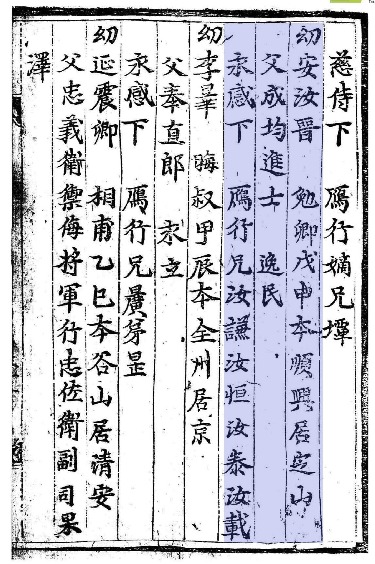 慈侍下 鴈行嫡兄墰
幼安汝晋 勉卿戊申本順興居定山
父成均進士 逸民
永感下 鴈行兄汝謙汝恒汝泰汝載
幼李㙫 晦叔甲辰本全州居京
父奉直郎 永立
永感下 鴈行兄農弟昰
幼延震卿 相甫乙巳本谷山居清安
父忠義衛禦侮將軍行忠佐衛副司果
澤